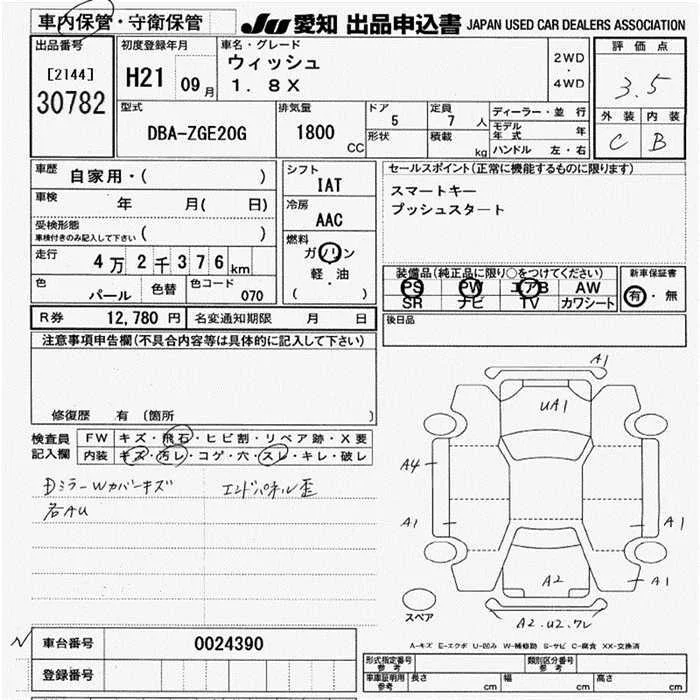 車内保管・守衛保管 JU 愛知 出品申込書 JAPAN USED CAR DEALERS ASSOCIATION
出品番号 初度登録年月 車名・グレード 評価点
[2144] H21 09月 ウィッシュ 2WD
30782 1. 8X ・
4WD 3.5
型式 排気量 ドア 定員 ディーラー・並行 外装 内装
DBA-ZGE20G 1800 CC 5 7 人 モデル年式 年 C B
形状 積載 kg ハンドル 左・右
車歴 自家用・( ) シフト セールスポイント(正常に機能するものに限ります)
IAT スマートキー
車検 年 月( 日) 冷房 プッシュスタート
AAC
受検形態
車検付きのみ記入して下さい ( ) 燃料
走行 4万2千376km ガソリン
軽・油
( )
装備品(純正品に限り○をつけてください) 新車保証書
PS PW エアB AW 有・無
SR ナビ TV カワシート
色 パール 色替 色コード 070
R券 12,780 円 名変通知期限 月 日 後日品
注意事項申告欄(不具合内容等は具体的に記入して下さい)
修復歴 有 (箇所 )
検査員 FW キズ・飛石・ヒビ割・リペア跡・X要
記入欄 内装 キズ・汚レ・コゲ・穴・スレ・キレ・破レ
DミラーWカバーキズ エンドパネル歪
右AU
A1
UA1
A4
A1 A1
A2 A1
スペア A2.U2.ワレ
A-キズ E-エクボ U-凹み W-補修跡 S-サビ C-腐食 XX-交換済
N 車台番号 0024390
登録番号
形式指定番号 参考 類別区分番号 参考
車庫証明用 参考 長さ cm 幅 cm 高さ cm